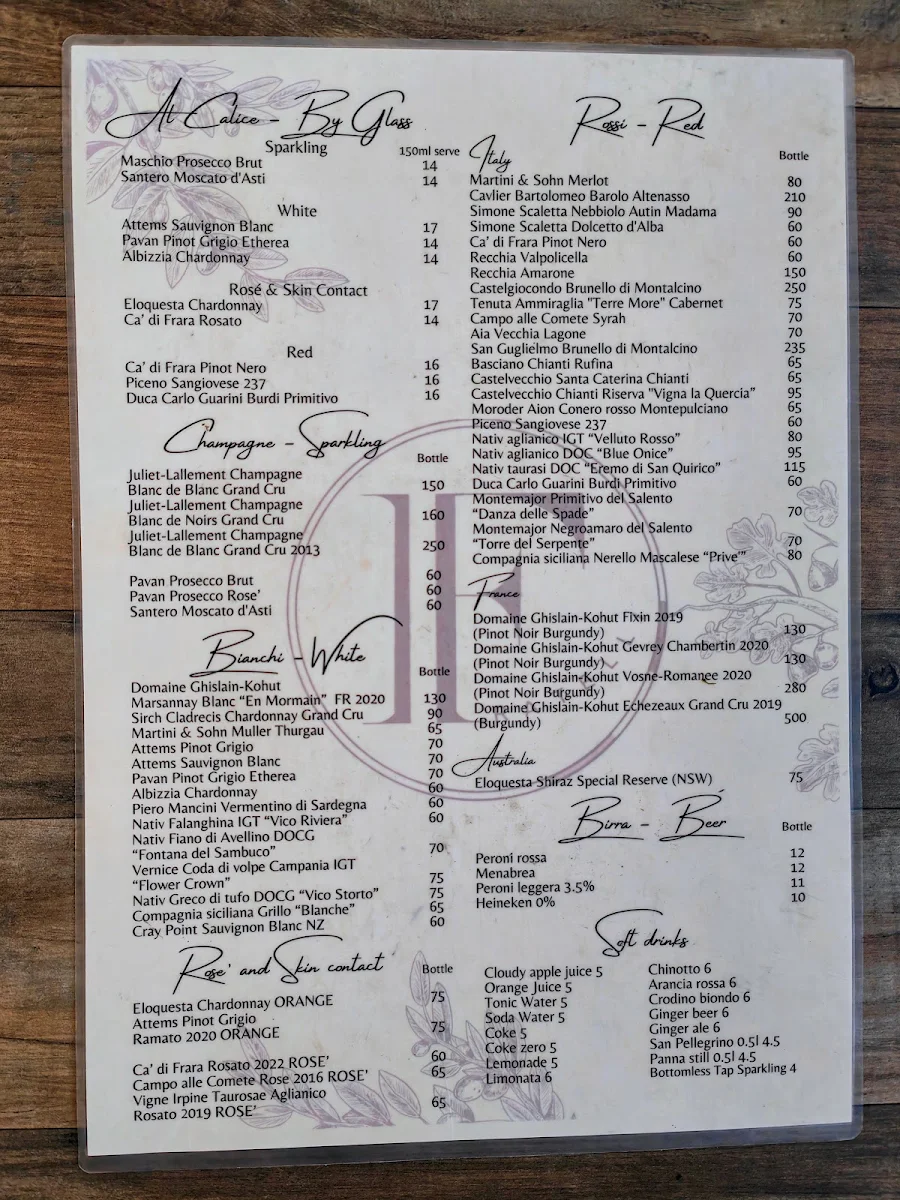 Al Calice - By Glass
Sparkling 150ml serve
Maschio Prosecco Brut 14
Santero Moscato d'Asti 14
White
Attems Sauvignon Blanc 17
Pavan Pinot Grigio Etherea 14
Albizzia Chardonnay 14
Rosé & Skin Contact
Eloquesta Chardonnay 17
Ca' di Frara Rosato 14
Red
Ca' di Frara Pinot Nero 16
Piceno Sangiovese 237 16
Duca Carlo Guarini Burdi Primitivo 16
Champagne - Sparkling
Bottle
Juliet-Lallement Champagne
Blanc de Blanc Grand Cru 150
Juliet-Lallement Champagne
Blanc de Noirs Grand Cru 160
Juliet-Lallement Champagne
Blanc de Blanc Grand Cru 2013 250
Pavan Prosecco Brut 60
Pavan Prosecco Rose' 60
Santero Moscato d'Asti 60
Bianchi - White
Bottle
Domaine Ghislain-Kohut
Marsannay Blanc "En Mormain" FR 2020 130
Sirch Cladrecis Chardonnay Grand Cru 90
Martini & Sohn Muller Thurgau 65
Attems Pinot Grigio 70
Attems Sauvignon Blanc 70
Pavan Pinot Grigio Etherea 70
Albizzia Chardonnay 60
Piero Mancini Vermentino di Sardegna 60
Nativ Falanghina IGT "Vico Riviera" 60
Nativ Fiano di Avellino DOCG
"Fontana del Sambuco" 70
Vernice Coda di volpe Campania IGT
"Flower Crown" 75
Nativ Greco di tufo DOCG "Vico Storto" 75
Compagnia siciliana Grillo "Blanche" 65
Cray Point Sauvignon Blanc NZ 60
Rose' and Skin contact
Bottle
Eloquesta Chardonnay ORANGE 75
Attems Pinot Grigio
Ramato 2020 ORANGE 75
Ca' di Frara Rosato 2022 ROSE' 60
Campo alle Comete Rose 2016 ROSE' 65
Vigne Irpine Taurosae Aglianico
Rosato 2019 ROSE' 65
Rossi - Red
Italy Bottle
Martini & Sohn Merlot 80
Cavlier Bartolomeo Barolo Altenasso 210
Simone Scaletta Nebbiolo Autin Madama 90
Simone Scaletta Dolcetto d'Alba 60
Ca' di Frara Pinot Nero 60
Recchia Valpolicella 60
Recchia Amarone 150
Castelgiocondo Brunello di Montalcino 250
Tenuta Ammiraglia "Terre More" Cabernet 75
Campo alle Comete Syrah 70
Aia Vecchia Lagone 70
San Guglielmo Brunello di Montalcino 235
Basciano Chianti Rufina 65
Castelvecchio Santa Caterina Chianti 65
Castelvecchio Chianti Riserva "Vigna la Quercia" 95
Moroder Aion Conero rosso Montepulciano 65
Piceno Sangiovese 237 60
Nativ aglianico IGT "Velluto Rosso" 80
Nativ aglianico DOC "Blue Onice" 95
Nativ taurasi DOC "Eremo di San Quirico" 115
Duca Carlo Guarini Burdi Primitivo 60
Montemajor Primitivo del Salento
"Danza delle Spade" 70
Montemajor Negroamaro del Salento
"Torre del Serpente" 70
Compagnia siciliana Nerello Mascalese "Prive'" 80
France
Domaine Ghislain-Kohut Fixin 2019
(Pinot Noir Burgundy) 130
Domaine Ghislain-Kohut Gevrey Chambertin 2020
(Pinot Noir Burgundy) 130
Domaine Ghislain-Kohut Vosne-Romanee 2020
(Pinot Noir Burgundy) 280
Domaine Ghislain-Kohut Echezeaux Grand Cru 2019
(Burgundy) 500
Australia
Eloquesta Shiraz Special Reserve (NSW) 75
Birra - Beer
Bottle
Peroni rossa 12
Menabrea 12
Peroni leggera 3.5% 11
Heineken 0% 10
Soft drinks
Cloudy apple juice 5
Orange Juice 5
Tonic Water 5
Soda Water 5
Coke 5
Coke zero 5
Lemonade 5
Limonata 6
Chinotto 6
Arancia rossa 6
Crodino biondo 6
Ginger beer 6
Ginger ale 6
San Pellegrino 0.5l 4.5
Panna still 0.5l 4.5
Bottomless Tap Sparkling 4